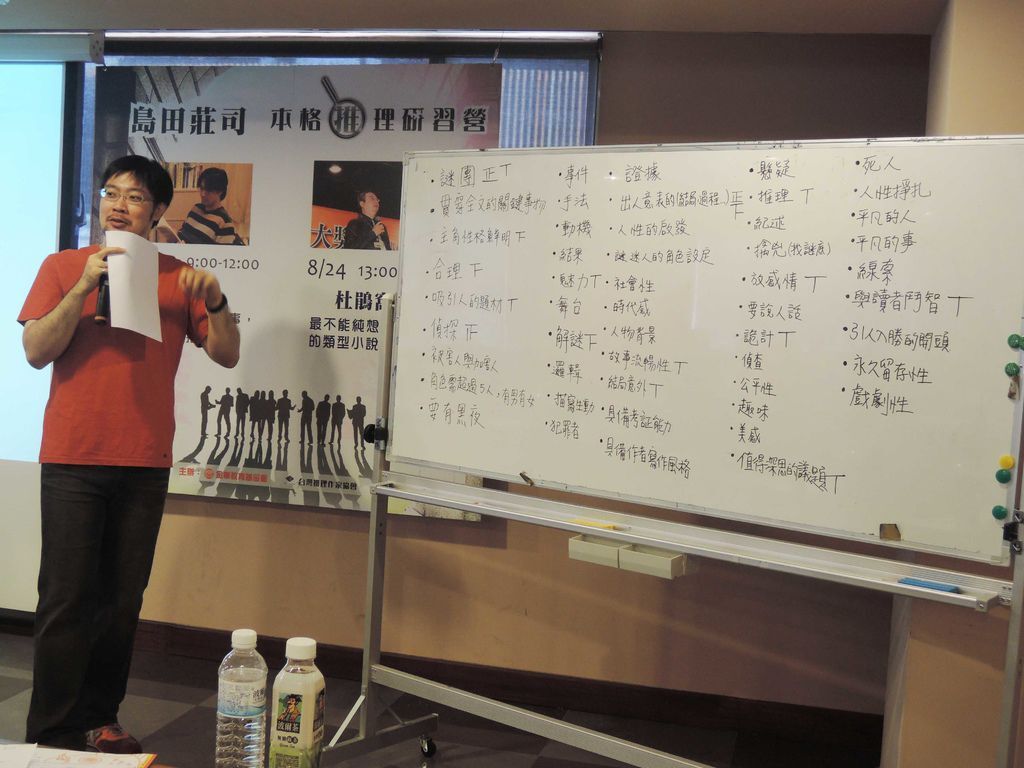 島田莊司 本格推理研習營
9:00-12:00
大獎
8/24 13:00
杜鵑
事，
最不能純想
的類型小說
主辦：
台灣推理作家協會
・謎團 正丅
・貫穿全文的關鍵事物
・主角性格鮮明 丅
・合理 下
・吸引人的題材 丅
・偵探 正
・被害人與加害人
・角色需超過5人，有男有女
・要有黑夜
・事件
・手法
・動機
・結果
・魅力 丅
・舞台
・解謎 下
・邏輯
・描寫生動
・犯罪者
・證據
・出人意表的(結局過程..) 正下
・人性的啟發
・謎迷人的角色設定
・社會性
・時代感
・人物背景
・故事流暢性 丅
・結局意外 丅
・具備考証能力
・具備作者寫作風格
・懸疑
・推理 丅
・紀述
・擒兇(找謎底)
・放感情 丅
・要說人話
・詭計 丅
・偵查
・公平性
・趣味
・美感
・值得深思的議題 丅
・死人
・人性掙扎
・平凡的人
・平凡的事
・線索
・與讀者鬥智 丅
・引人入勝的開頭
・永久留存性
・戲劇性
波爾茶